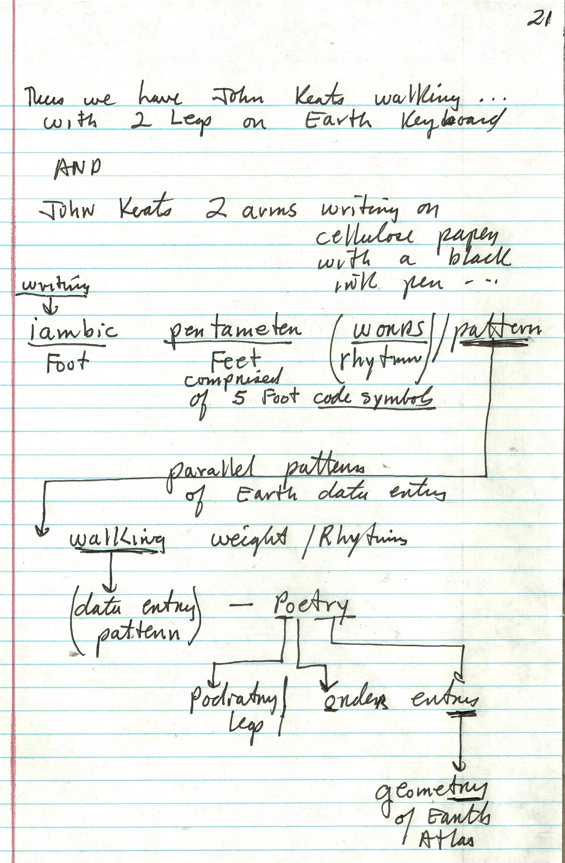 21
Thus we have John Keats walking ...
with 2 Legs on Earth Keyboard
AND
John Keats 2 arms writing on
cellulose paper
with a black
ink pen ...
writing
iambic pentameter (words / pattern
Foot Feet rhythm)
comprised
of 5 Foot code symbols
parallel patterns
of Earth data entry
walking weight / Rhythms
(data entry — Poetry
pattern)
Podiatry / order entry
legs
geometry
of Earth
Atlas